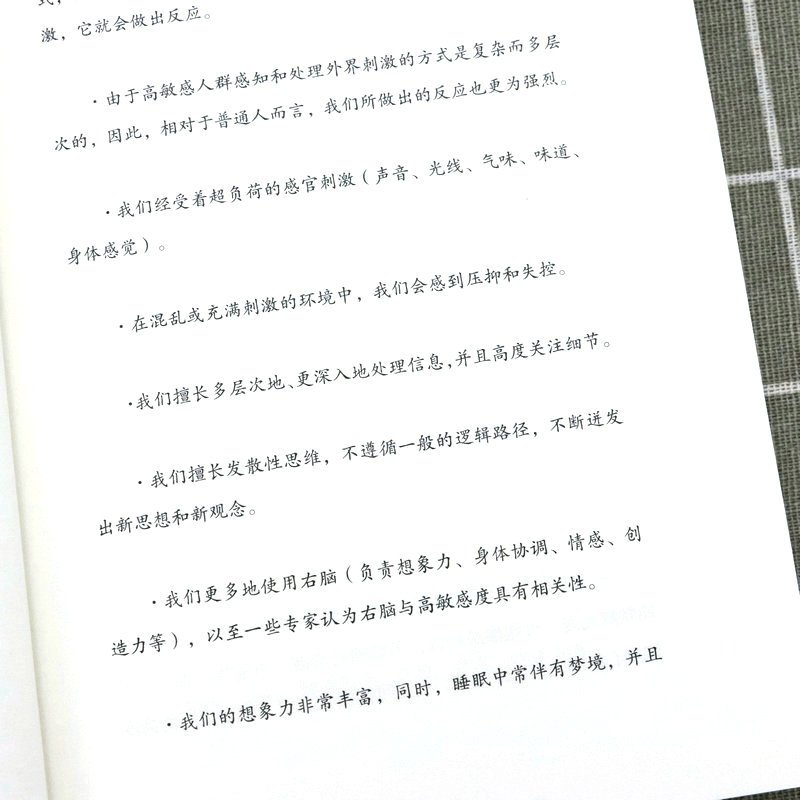 式，
激，它就会做出反应。
·由于高敏感人群感知和处理外界刺激的方式是复杂而多层
次的，因此，相对于普通人而言，我们所做出的反应也更为强烈。
·我们经受着超负荷的感官刺激（声音、光线、气味、味道、
身体感觉）。
·在混乱或充满刺激的环境中，我们会感到压抑和失控。
·我们擅长多层次地、更深入地处理信息，并且高度关注细节。
·我们擅长发散性思维，不遵循一般的逻辑路径，不断迸发
出新思想和新观念。
·我们更多地使用右脑（负责想象力、身体协调、情感、创
造力等），以至一些专家认为右脑与高敏感度具有相关性。
·我们的想象力非常丰富，同时，睡眠中常伴有梦境，并且